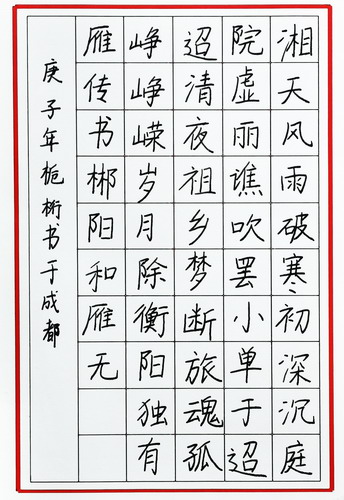 湘天风雨破寒初深沉庭
院虚丽谯吹罢小单于迢
迢清夜祖乡梦断旅魂孤
峥峥嵘岁月除衡阳独有
雁传书郴阳和雁无
庚子年栀桁书于成都